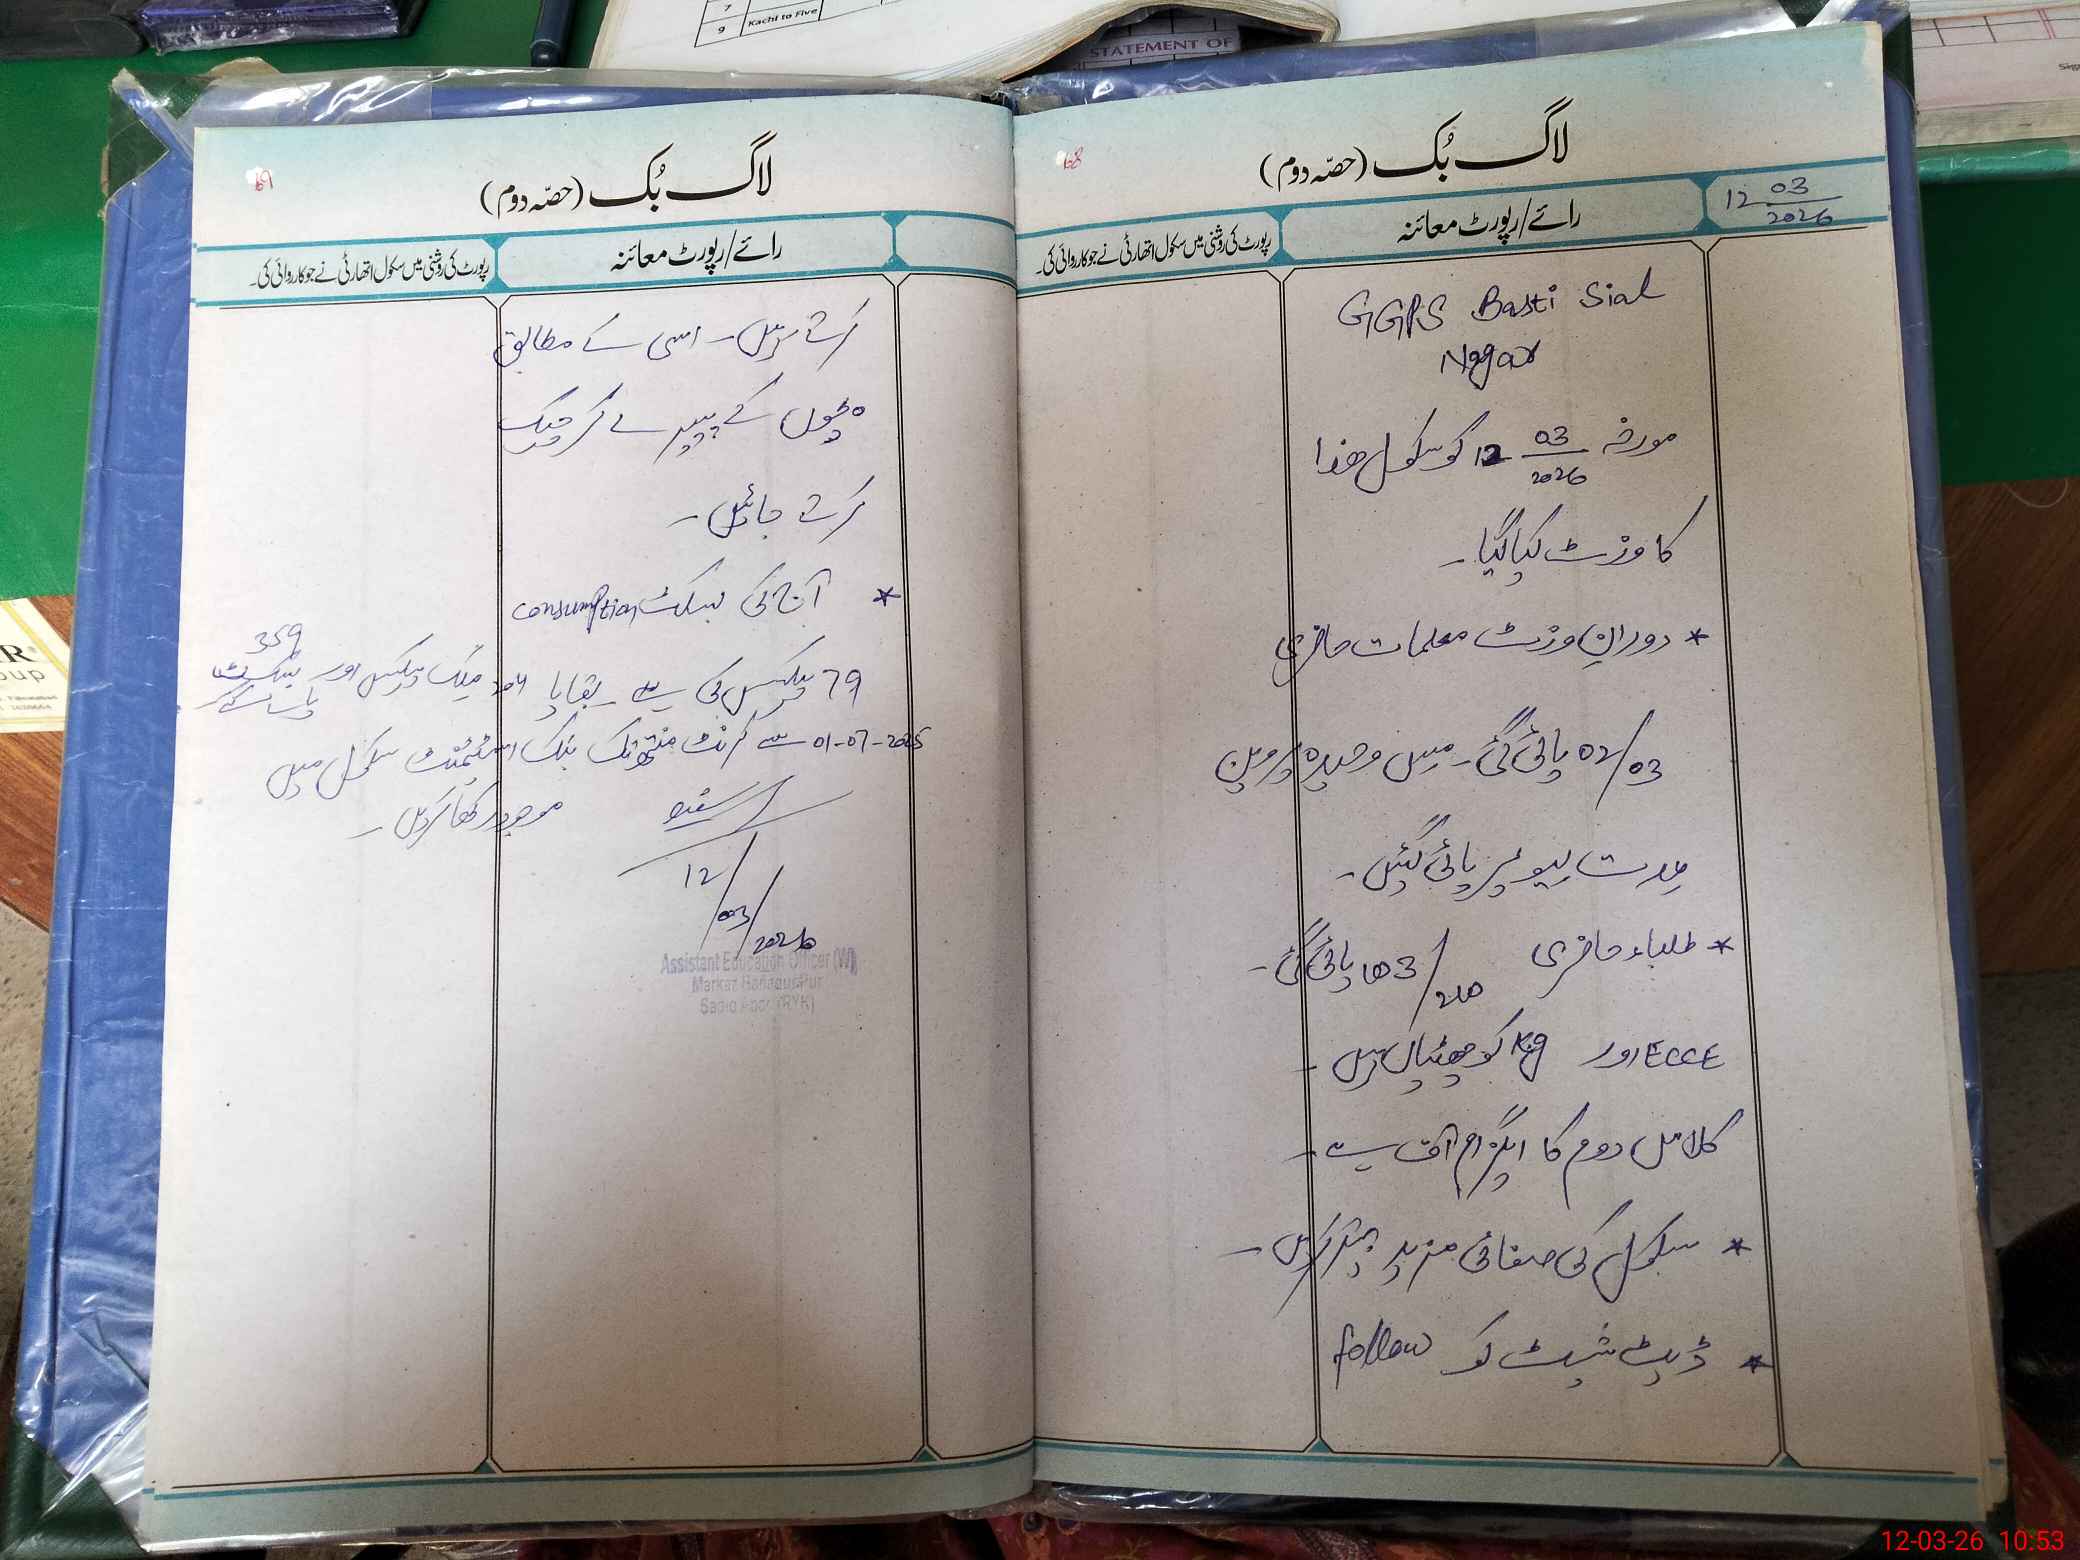 7
9 Kachi to Five
STATEMENT OF
68
لاگ بُک (حصّہ دوم)
12 03 2026
رائے/رپورٹ معائنہ
رپورٹ کی روشنی میں سکول اتھارٹی نے جو کارروائی کی۔
GGPS Basti Sial
Nagar
مورخہ 12 03 2026 کو سکول ھذا
کا وزٹ کیا گیا۔
* دورانِ وزٹ معلمات حاضری
02/03 پائی گئی۔ مس وحیدہ پروین
عدت لیو پر پائی گئیں۔
* طلباء حاضری 103/210 پائی گئی۔
ECCE اور Kg کو چھٹیاں ہیں۔
کلاس دوم کا ایگزام آف ہے۔
* سکول کی صفائی مزید بہتر کریں۔
* ڈیٹ شیٹ کو follow
69
لاگ بُک (حصّہ دوم)
رائے/رپورٹ معائنہ
رپورٹ کی روشنی میں سکول اتھارٹی نے جو کارروائی کی۔
کرتے ہیں۔ اسی کے مطابق
بچوں کے پیپر لے کر چیک
کرتے جائیں۔
* آج کی بسکٹ consumption
79 پیکٹس کی ہے۔ بقایا 204 ملک پیکٹس اور بسکٹ 359
01-07-2025 سے کرنٹ منتھ تک بنک اسٹیٹمنٹ سکول میں
موجود رکھا کریں۔
12/03/2026
Assistant Education Officer (W)
Markaz
Sadiq Abad (RYK)
12-03-26 10:53